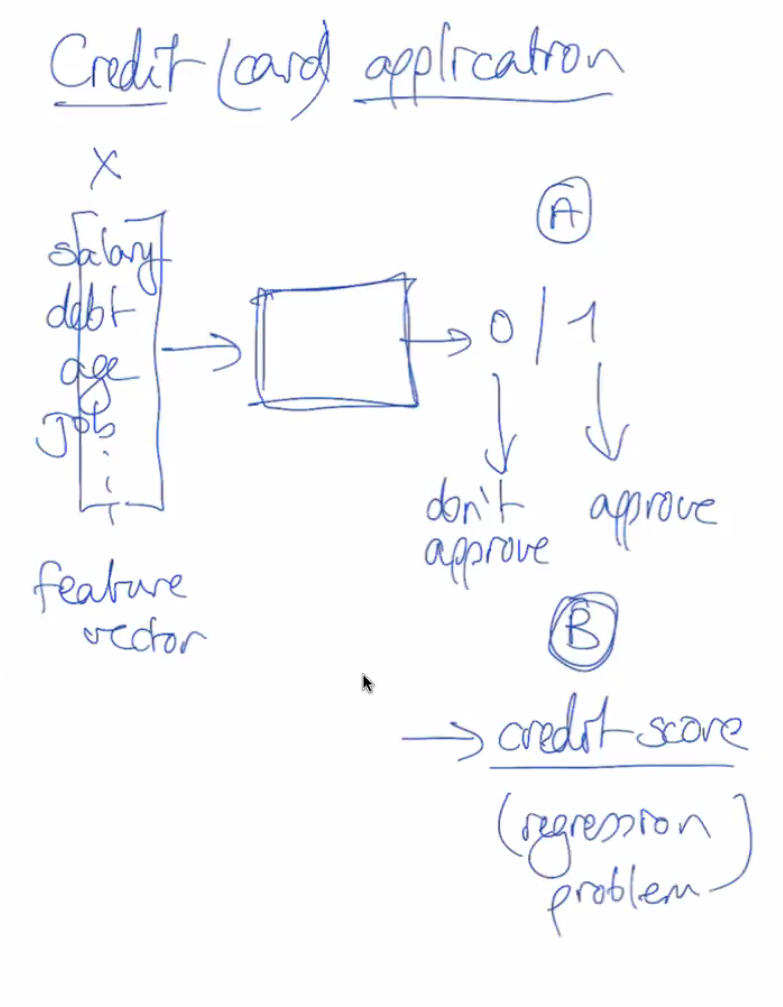 Credit (card) application
X
salary
debt
age
Job
feature
vector
A
0 | 1
don't
approve
approve
B
credit score
(regression
problem)